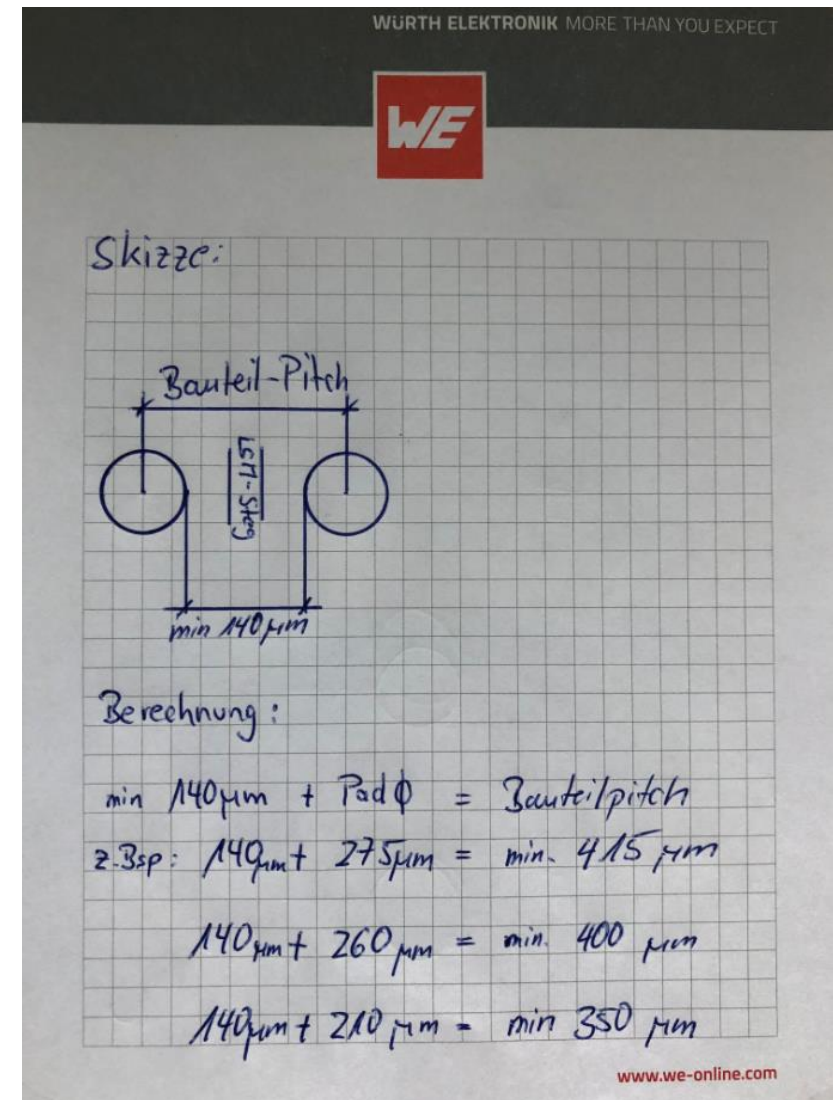 WÜRTH ELEKTRONIK MORE THAN YOU EXPECT
WE
Skizze:
Bauteil-Pitch
LSM-Steg
min 140µm
Berechnung:
min 140µm + Padϕ = Bauteilpitch
z.Bsp: 140µm + 275µm = min. 415 µm
140µm + 260µm = min. 400 µm
140µm + 210µm = min 350 µm
www.we-online.com